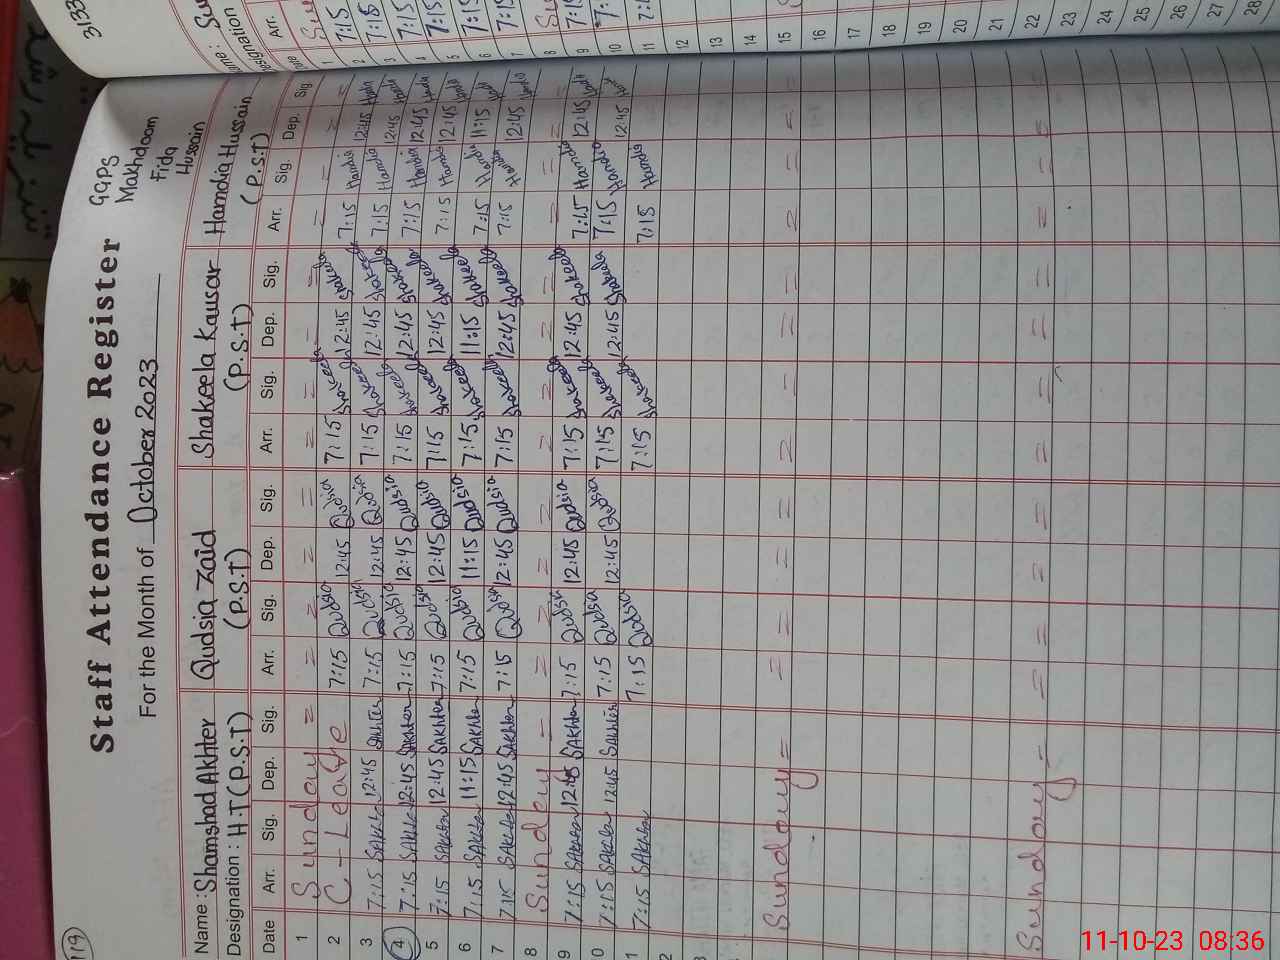 119
Staff Attendance Register
GGPS
Makhdoom
Fida
Hussain
For the Month of October 2023
Name : Shamshad Akhter Qudsia Zaid Shakeela Kausar Hamdia Hussain
Designation : H.T (P.S.T) (P.S.T) (P.S.T) (P.S.T)
Date Arr. Sig. Dep. Sig. Arr. Sig. Dep. Sig. Arr. Sig. Dep. Sig. Arr. Sig. Dep. Sig.
1 Sunday = = = = = = = = = = = = =
2 C-Leave 7:15 Qudsia 12:45 Qudsia 7:15 Shakeela 12:45 Shakeela 7:15 Hamdia 12:45 Hamdia
3 7:15 SAkhter 12:45 SAkhter 7:15 Qudsia 12:45 Qudsia 7:15 Shakeela 12:45 Shakeela 7:15 Hamdia 12:45 Hamdia
4 7:15 SAkhter 12:45 SAkhter 7:15 Qudsia 12:45 Qudsia 7:15 Shakeela 12:45 Shakeela 7:15 Hamdia 12:45 Hamdia
5 7:15 SAkhter 12:45 SAkhter 7:15 Qudsia 12:45 Qudsia 7:15 Shakeela 12:45 Shakeela 7:15 Hamdia 12:45 Hamdia
6 7:15 SAkhter 11:15 SAkhter 7:15 Qudsia 11:15 Qudsia 7:15 Shakeela 11:15 Shakeela 7:15 Hamdia 11:15 Hamdia
7 7:15 SAkhter 12:45 SAkhter 7:15 Qudsia 12:45 Qudsia 7:15 Shakeela 12:45 Shakeela 7:15 Hamdia 12:45 Hamdia
8 Sunday = = = = = = = = = = = = =
9 7:15 SAkhter 12:45 SAkhter 7:15 Qudsia 12:45 Qudsia 7:15 Shakeela 12:45 Shakeela 7:15 Hamdia 12:45 Hamdia
0 7:15 SAkhter 12:45 SAkhter 7:15 Qudsia 12:45 Qudsia 7:15 Shakeela 12:45 Shakeela 7:15 Hamdia 12:45 Hamdia
1 7:15 SAkhter 7:15 Qudsia 7:15 Shakeela 7:15 Hamdia
2
3
Sunday = = = = = = = = = = = = =
Sunday = = = = = = = = = = = = =
3133
Arr.
1
2 7:15
3 7:15
4 7:15
5 7:15
6 7:15
7 7:15
8
9 7:15
10
11
12
13
14
15
16
17
18
19
20
21
22
23
24
25
26
27
28
11-10-23 08:36